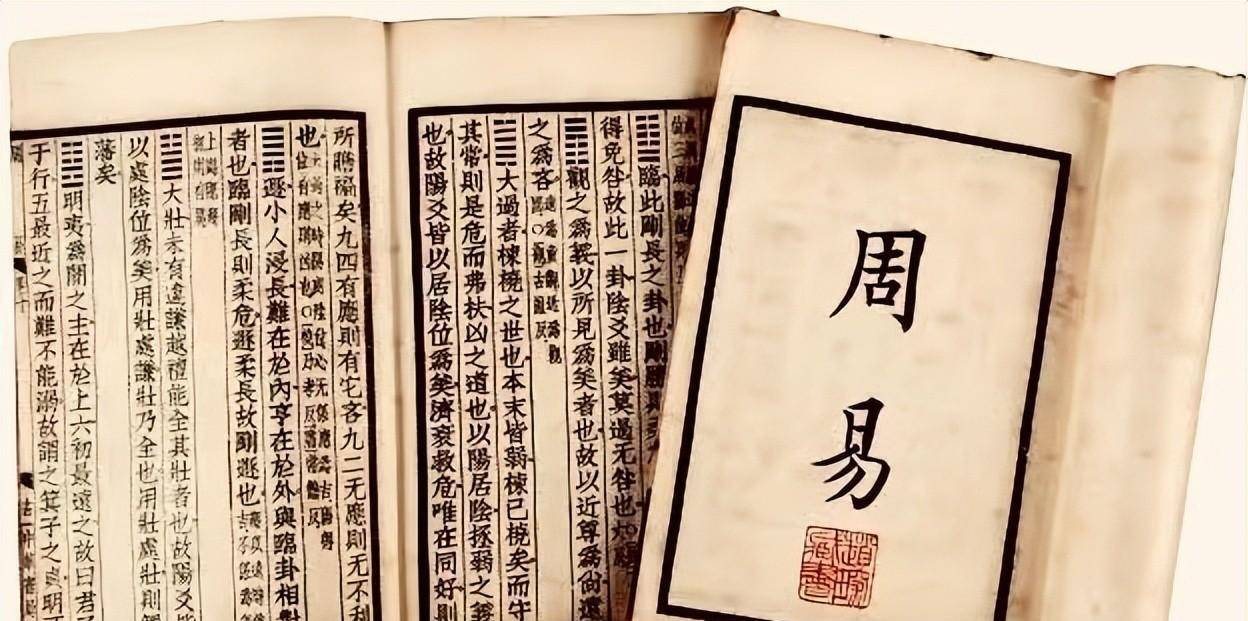 周易
䷒臨此剛長之卦也剛勝則柔
得免咎故此一卦陰爻雖美莫過无咎也
䷓觀之爲義以所見爲美者也故以近尊爲尚遠
之爲吝
䷛大過者棟橈之世也本末皆弱棟已橈矣而守
其常則是危而弗扶凶之道也以陽居陰拯弱之義
也故陽爻皆以居陰位爲美濟衰救危唯在同好則
所贍福矣九四有應則有宅吝九二无應則无不利
也
䷠遯小人浸長難在於內亨在於外與臨卦相對
者也臨剛長則柔危遯柔長故剛遯也
䷡大壯未有違謙越禮能全其壯者也故陽爻皆
以處陰位爲美用壯處謙壯乃全也用壯處壯則觸
藩矣
䷣明夷爲闇之主在於上六初最遠之故曰君子
于行五最近之而難不能溺故謂之箕子之貞明不